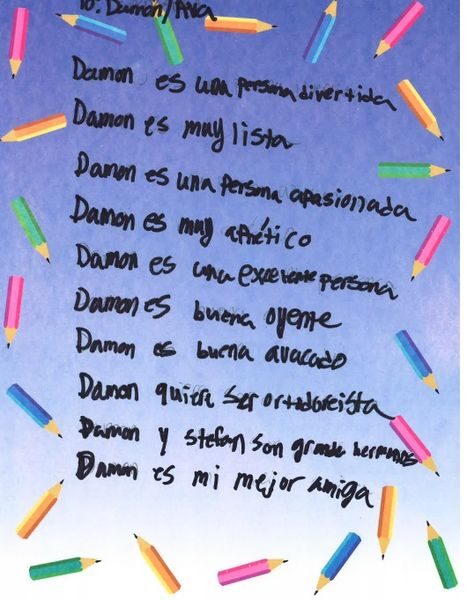 To: Damon/Ana
Damon es una persona divertida
Damon es muy lista
Damon es una persona apasionada
Damon es muy atlético
Damon es una excelente persona
Damon es buena oyente
Damon es buena avacado
Damon quiere ser
Damon y stefan son grande hermanos
Damon es mi mejor amiga